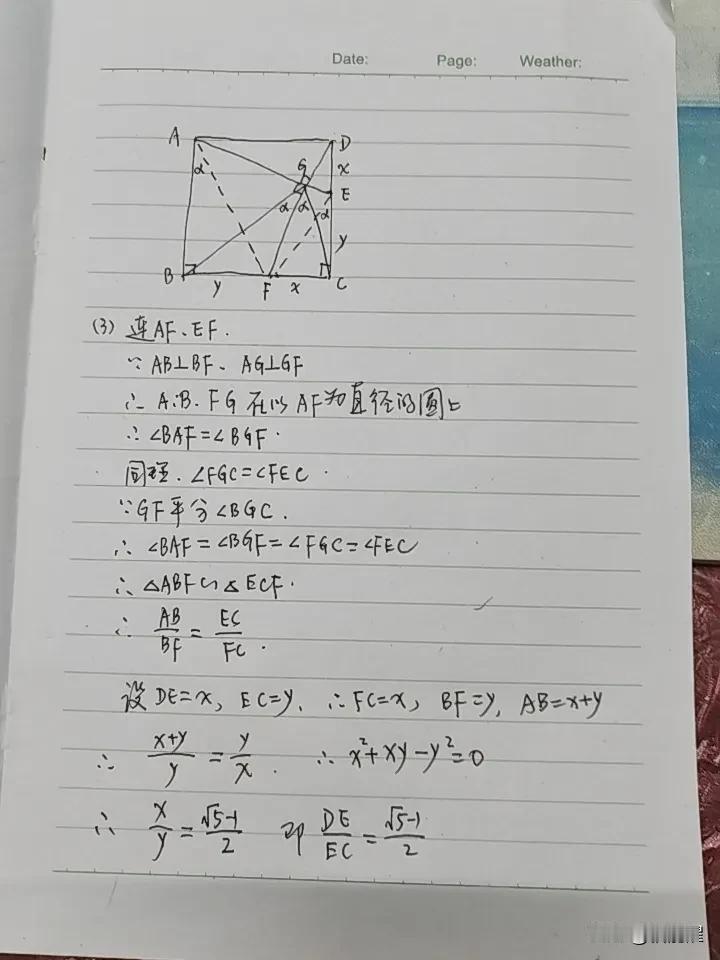 Date: Page: Weather:
A D
G x
α E
α α α
y
B F C
y x
(3) 连AF、EF.
∵ AB⊥BF、AG⊥GF
∴ A.B.F G 在以 AF为直径的圆上
∴ ∠BAF=∠BGF.
同理.∠FGC=∠FEC.
∵GF平分∠BGC.
∴ ∠BAF=∠BGF=∠FGC=∠FEC
∴ △ABF∽△ECF.
∴ AB/BF = EC/FC.
设 DE=x, EC=y, ∴ FC=x, BF=y, AB=x+y
∴ (x+y)/y = y/x. ∴ x²+xy-y²=0
∴ x/y = (√5-1)/2 即 DE/EC = (√5-1)/2